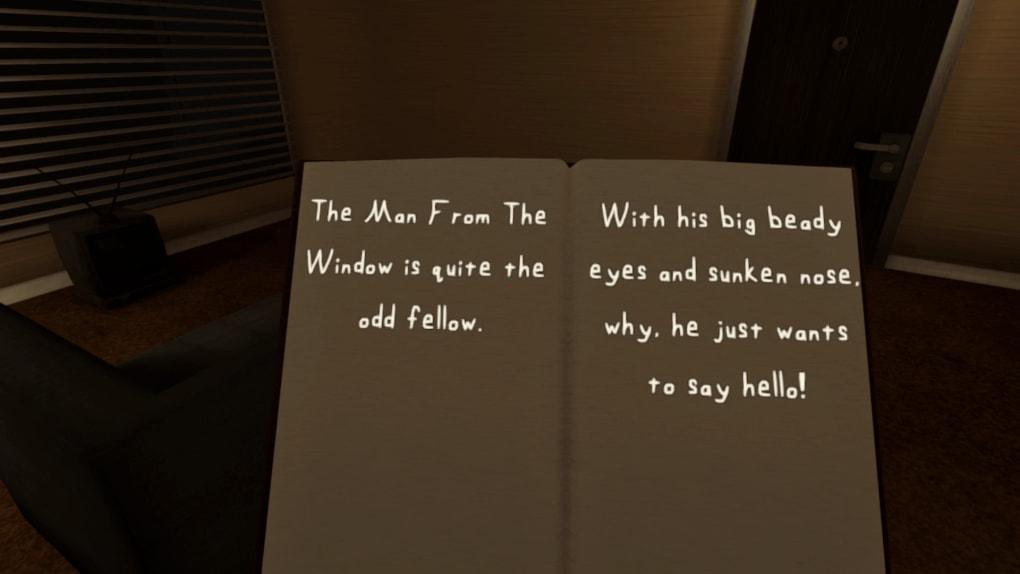 The Man From The
Window is quite the
odd fellow.
With his big beady
eyes and sunken nose,
why, he just wants
to say hello!